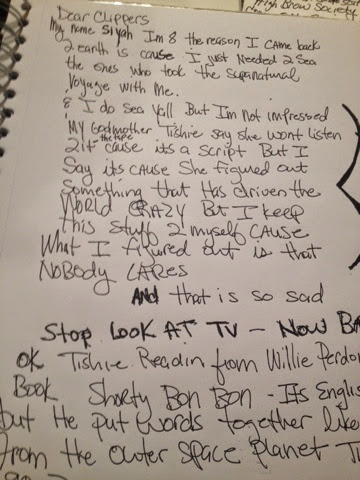 High Brow Society
Dear Clippers
My name Siyah Im 8 the reason I came back
2 earth is cause I just needed 2 Sea
the ones who took the Supanatural
Voyage with Me.
& I do Sea Yall But Im not impressed
My Godmother Tishie say she wont listen
2 the tape
it cause its a script But I
Say its cause She figured out
Something that Has driven the
WORLD CRAZY But I keep
this stuff 2 myself cause
What I figured out is that
NoBody CAREs
And that is so sad
Stop Look At TV - Now
OK Tishie Readin from Willie
Book Shorty Bon Bon - Its
but He put words together like
from the outer space Planet